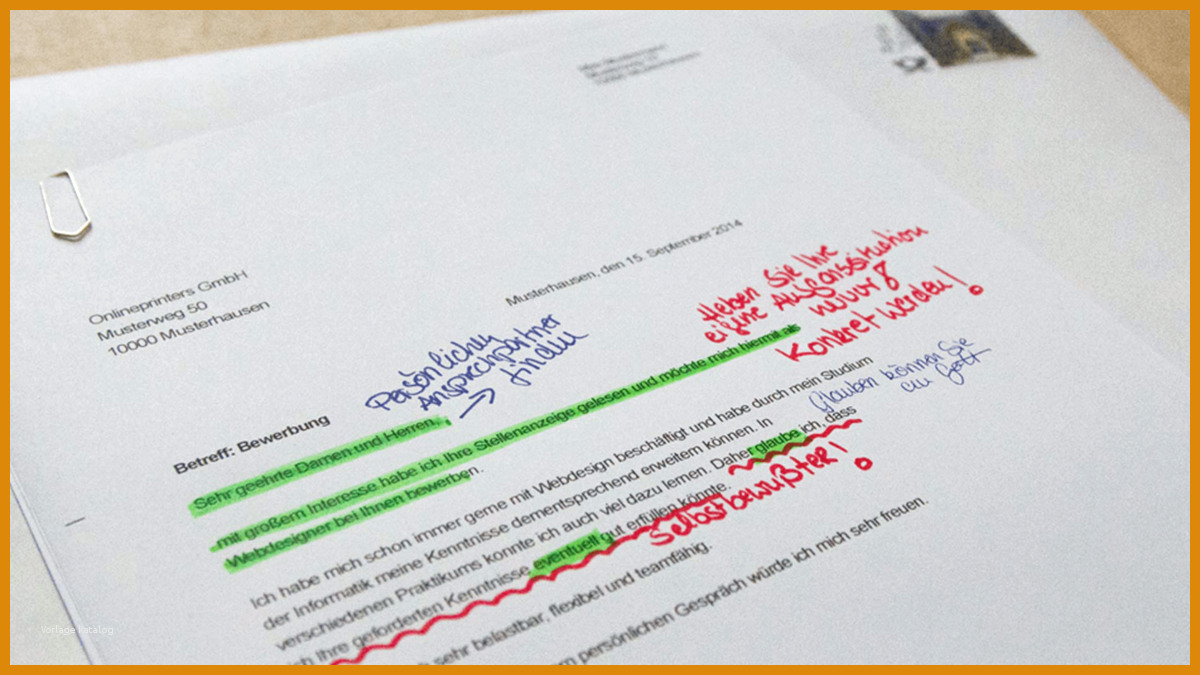 Musterhausen, den 15. September 2014
Onlineprinters GmbH
Musterweg 50
10000 Musterhausen
Heben Sie Ihre
Konkret werden!
Persönlichen
Ansprechpartner
→ finden
Betreff: Bewerbung
Sehr geehrte Damen und Herren,
mit großem Interesse habe ich Ihre Stellenanzeige gelesen und möchte mich hiermit als
Webdesigner bei Ihnen bewerben.
Glauben können Sie
an Gott
Ich habe mich schon immer gerne mit Webdesign beschäftigt und habe durch mein Studium
der Informatik meine Kenntnisse dementsprechend erweitern können. In
verschiedenen Praktikums konnte ich auch viel dazu lernen. Daher glaube ich, dass
ich Ihre geforderten Kenntnisse eventuell gut erfüllen könnte.
selbstbewußter!
sehr belastbar, flexibel und teamfähig.
persönlichen Gespräch würde ich mich sehr freuen.
Vorlage Katalog